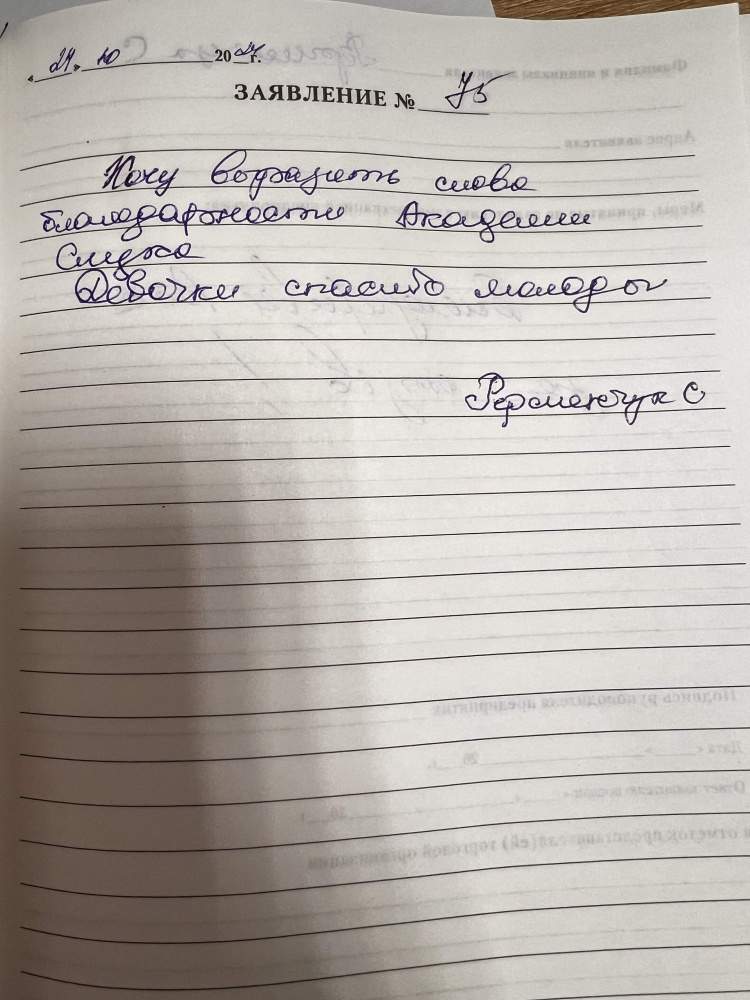 « 21 » 10 2024 г.
ЗАЯВЛЕНИЕ № 75
Хочу выразить слова
благодарности Академии
Слуха
Девочки спасибо молодцы
С